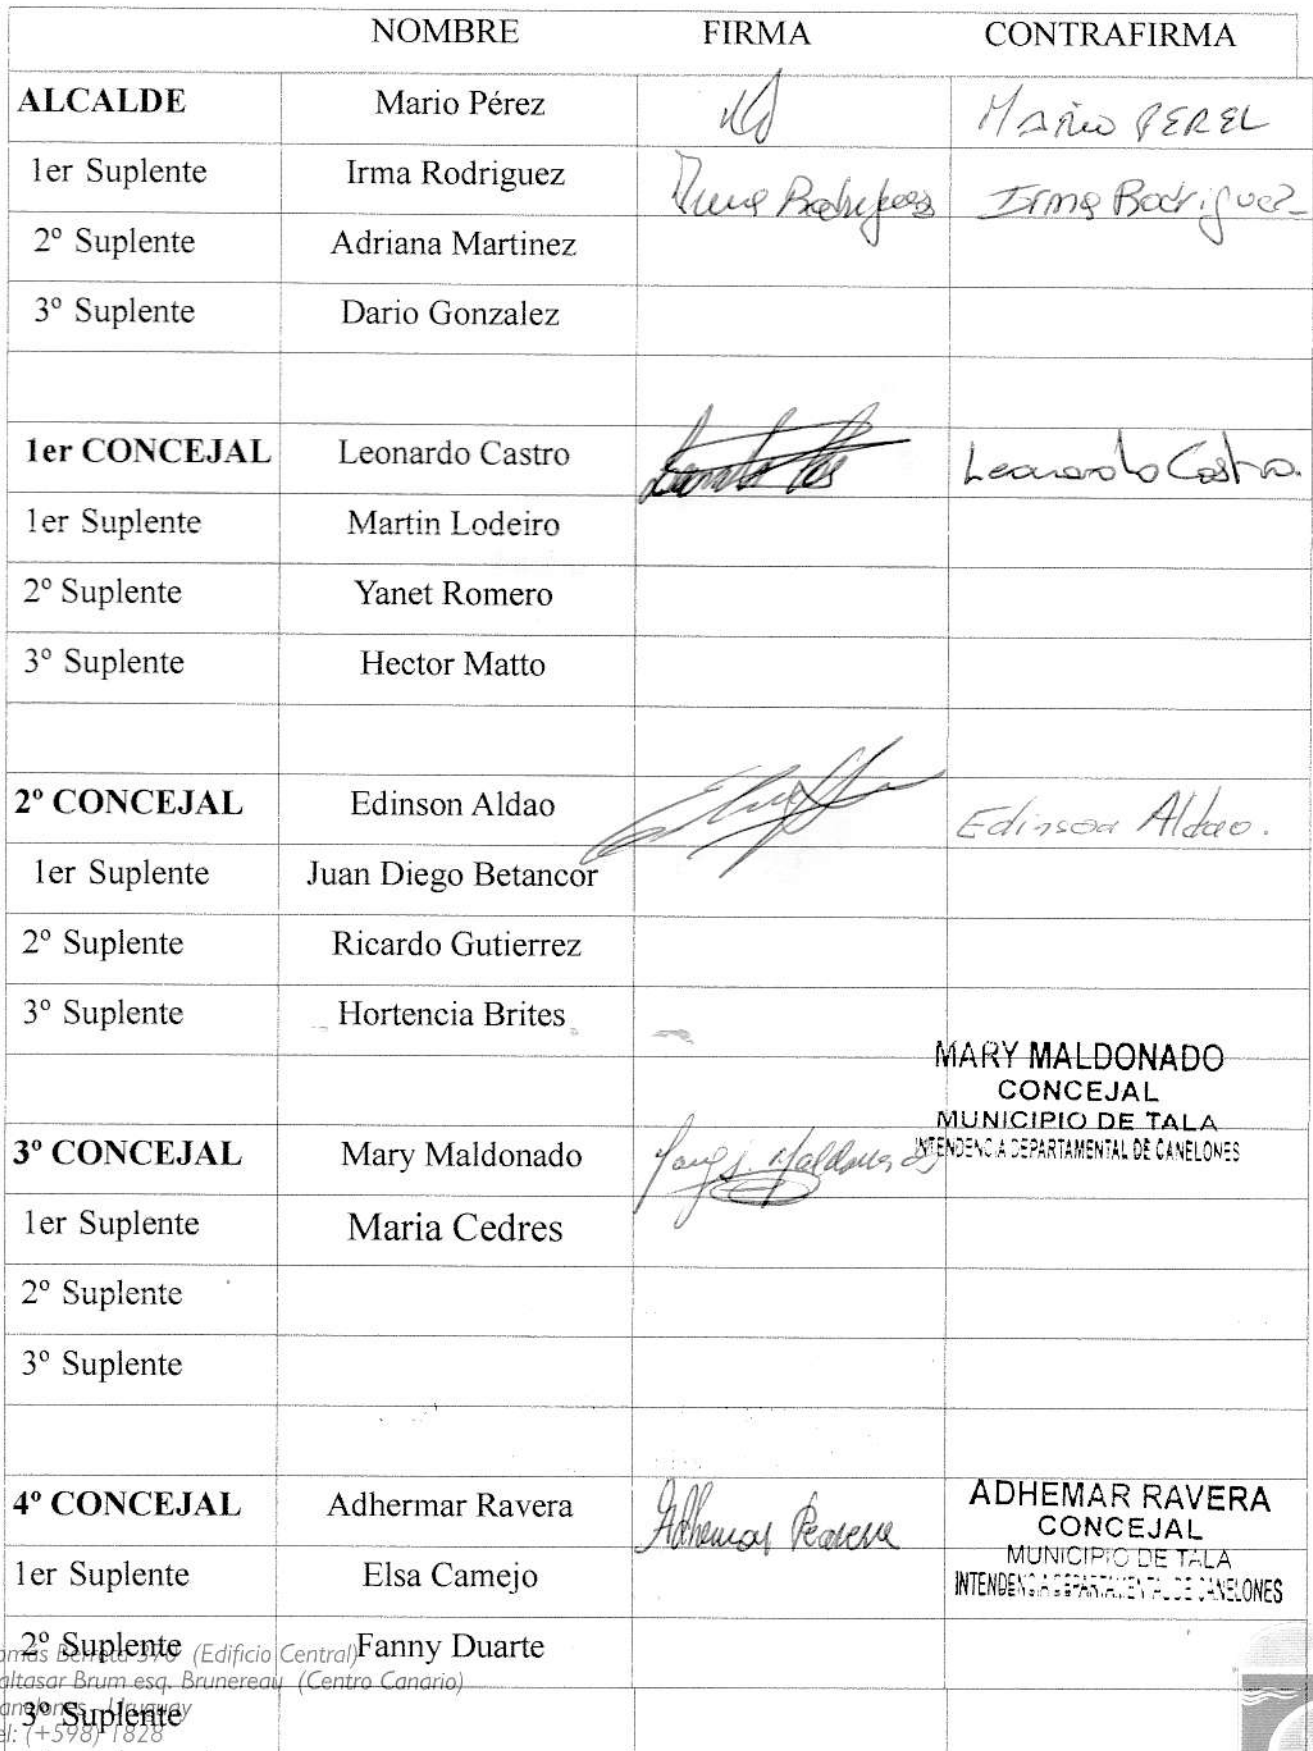 NOMBRE FIRMA CONTRAFIRMA
ALCALDE Mario Pérez MARIO PEREZ
1er Suplente Irma Rodriguez Irma Rodriguez Irma Rodriguez
2º Suplente Adriana Martinez
3º Suplente Dario Gonzalez
1er CONCEJAL Leonardo Castro Leonardo Castro.
1er Suplente Martin Lodeiro
2º Suplente Yanet Romero
3º Suplente Hector Matto
2º CONCEJAL Edinson Aldao Edinson Aldao.
1er Suplente Juan Diego Betancor
2º Suplente Ricardo Gutierrez
3º Suplente Hortencia Brites
MARY MALDONADO
CONCEJAL
MUNICIPIO DE TALA
INTENDENCIA DEPARTAMENTAL DE CANELONES
3º CONCEJAL Mary Maldonado Mary J. Maldonado
1er Suplente Maria Cedres
2º Suplente
3º Suplente
4º CONCEJAL Adhermar Ravera Adhemar Ravera ADHEMAR RAVERA
CONCEJAL
MUNICIPIO DE TALA
INTENDENCIA DEPARTAMENTAL DE CANELONES
1er Suplente Elsa Camejo
2º Suplente Fanny Duarte
omás Berreta 370 (Edificio Central)
altasar Brum esq. Brunereau (Centro Canario)
anelones - Uruguay
3º Suplente
el: (+598) 1828